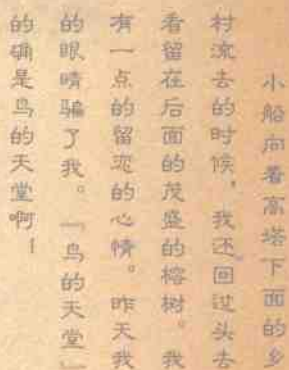 小船向着高塔下面的乡
村流去的时候，我还回过头去
看留在后面的茂盛的榕树。我
有一点的留恋的心情。昨天我
的眼睛骗了我。“鸟的天堂”
的确是鸟的天堂啊！